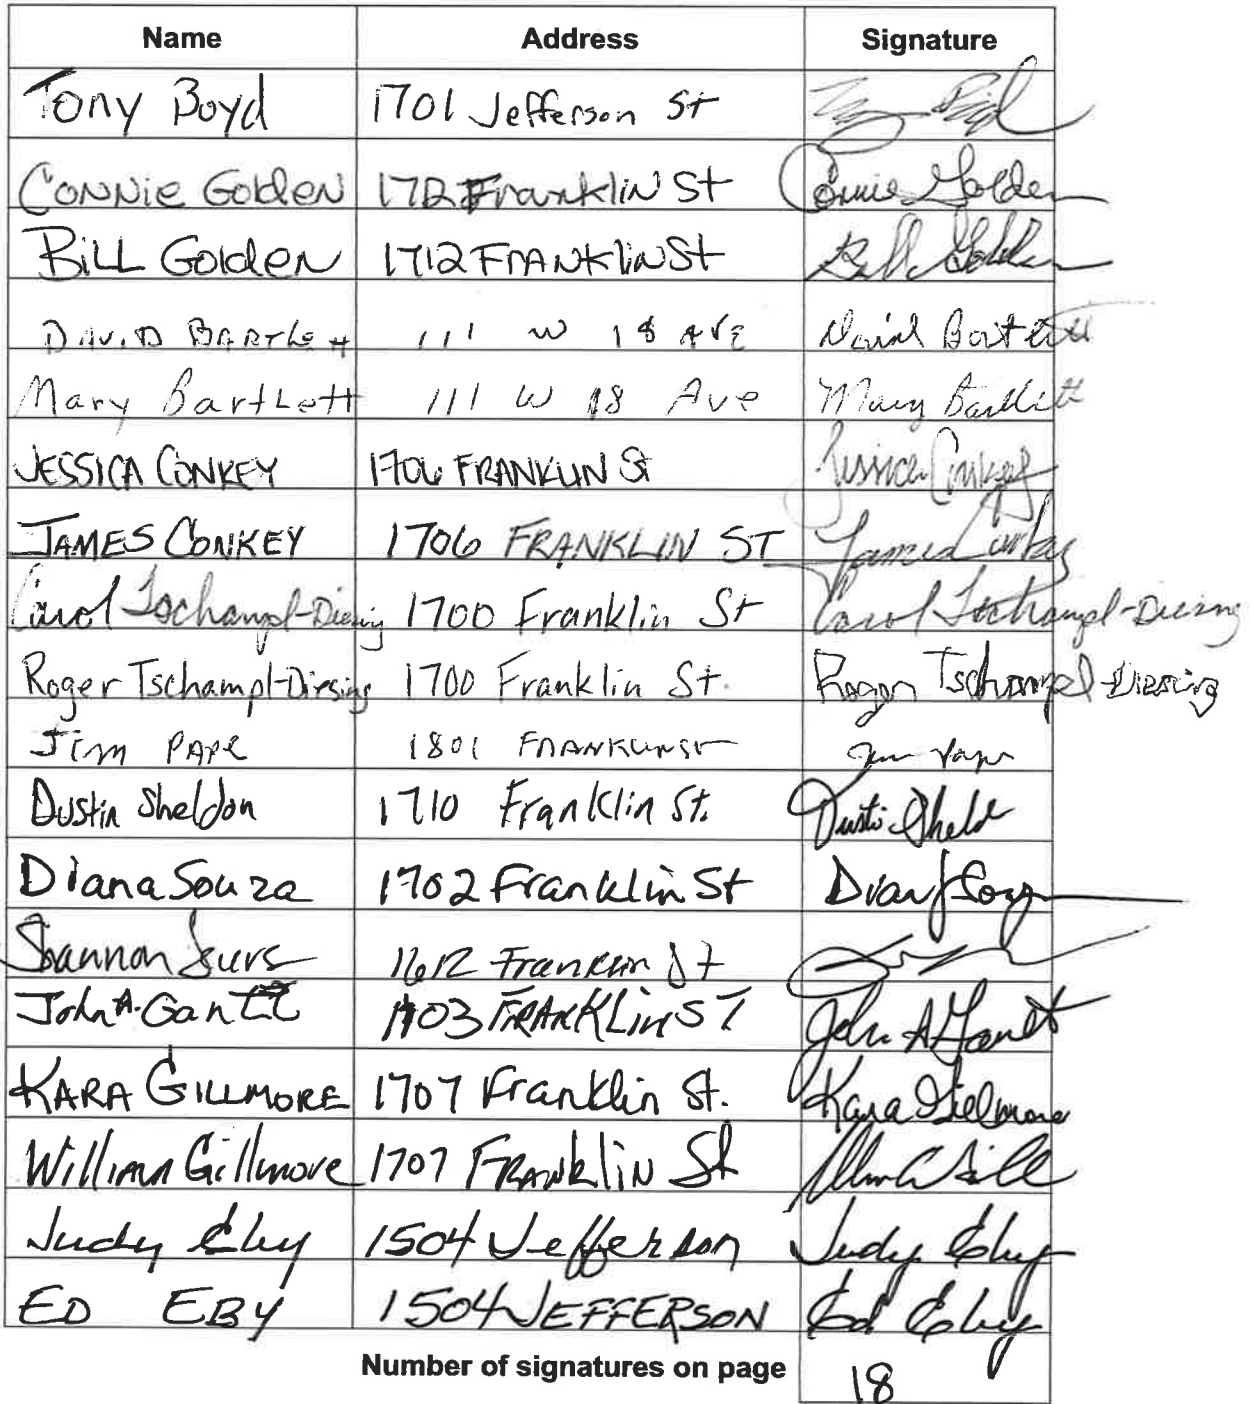 Name Address Signature
Tony Boyd 1701 Jefferson St
Connie Golden 1712 Franklin St Connie Golden
Bill Golden 1712 Franklin St Bill Golden
David Bartlett 111 W 18 Ave David Bartlett
Mary Bartlett 111 W 18 Ave Mary Bartlett
JESSICA CONKEY 1706 FRANKLIN St Jessica Conkey
JAMES CONKEY 1706 FRANKLIN ST James Conkey
Carol Tschampl-Diesing 1700 Franklin St Carol Tschampl-Diesing
Roger Tschampl-Diesing 1700 Franklin St. Roger Tschampl-Diesing
Jim PAPE 1801 FRANKLIN ST Jim Pape
Dustin Sheldon 1710 Franklin St.
Diana Souza 1702 Franklin St
Shannon 1612 Franklin St
John A. Gantt FRANKLIN ST John A Gantt
KARA GILLMORE 1707 Franklin St. Kara Gillmore
William Gillmore 1707 FRANKLIN St
Judy Eby 1504 Jefferson Judy Eby
ED EBY 1504 JEFFERSON Ed Eby
Number of signatures on page 18